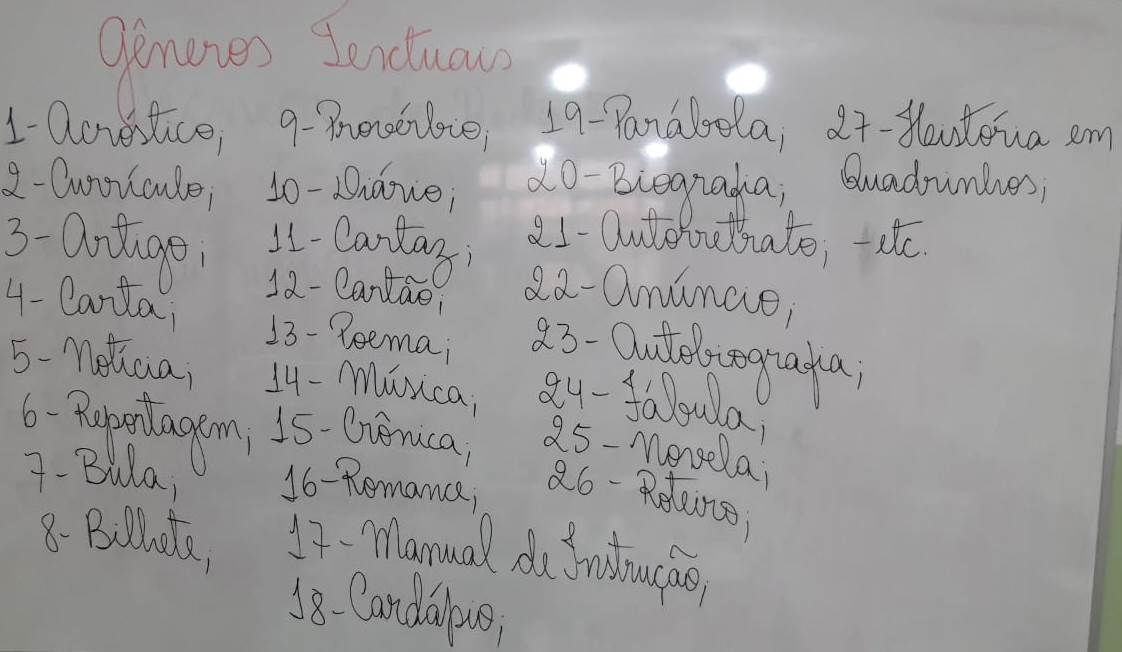 Gêneros Textuais
1- Acróstico;
2- Currículo;
3- Artigo;
4- Carta;
5- Notícia;
6- Reportagem;
7- Bula;
8- Bilhete;
9- Provérbio;
10- Diário;
11- Cartaz;
12- Cartão;
13- Poema;
14- Música;
15- Crônica;
16- Romance;
17- Manual de Instrução;
18- Cardápio;
19- Parábola;
20- Biografia;
21- Autorretrato;
22- Anúncio;
23- Autobiografia;
24- Fábula;
25- Novela;
26- Roteiro;
27- História em
Quadrinhos;
- etc.